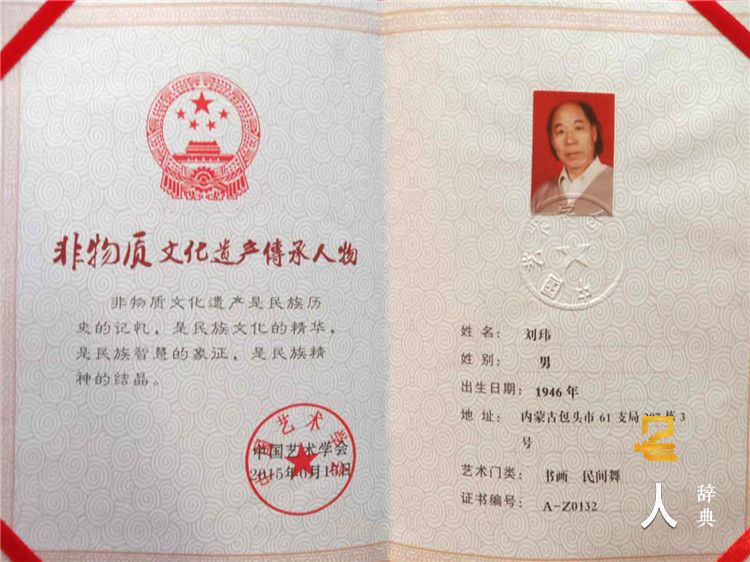 非物质文化遗产傳承人物
非物质文化遗产是民族历
史的记忆，是民族文化的精华，
是民族智慧的象征，是民族精
神的结晶。
中国艺术学会
2015年6月15日
中国艺术学会
姓 名： 刘玮
性 别： 男
出生日期： 1946 年
地 址： 内蒙古包头市 61 支局 207 栋 3
号
艺术门类： 书画 民间舞
证书编号： A-Z0132
人 辞典